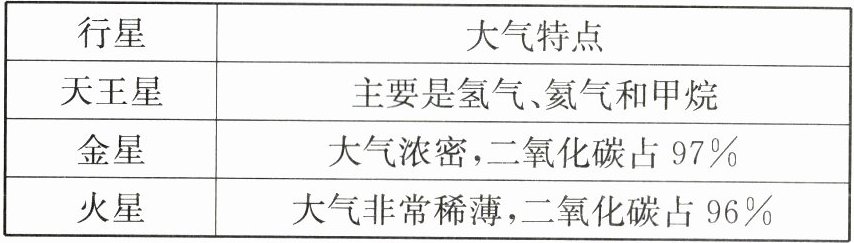 行星 大气特点
天王星 主要是氢气、氦气和甲烷
金星 大气浓密,二氧化碳占 97%
火星 大气非常稀薄,二氧化碳占 96%